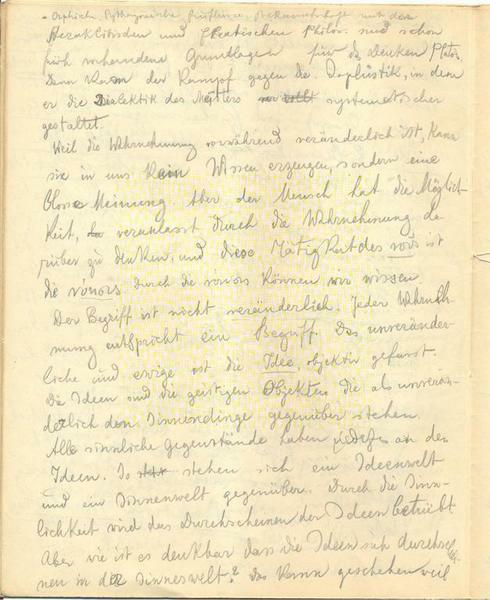 Orphische, Pythagoräische Einflüsse, Bekanntschaft mit der
Heraklitischen und Eleatischen Philos. sind schon
früh vorhandene Grundlagen für das Denken Platos.
Dann kam der Kampf gegen die Sophistik, in dem
er die Dialektik des Meisters systematischer
gestaltet.
Weil die Wahrnehmung vorwährend veränderlich ist, kann
sie in uns kein Wissen erzeugen, sondern eine
blosse Meinung. Aber der Mensch hat die Möglich-
keit, veranlasst durch die Wahrnehmung da-
rüber zu denken, und diese Tätigkeit des νοῦς ist
die νόησις durch die νόησις können wir wissen
Der Begriff ist nicht veränderlich. Jeder Wahrneh-
mung entspricht ein Begriff. Das unveränder-
liche und ewige ist die Idee, objektiv gefasst.
Die Ideen sind die geistigen Objekten die als unverän-
derlich den Sinnendinge gegenüber stehen.
Alle sinnliche Gegenstände haben an den
Ideen. So stehen sich ein Ideenwelt
und ein Sinnenwelt gegenüber. Durch die Sinn-
lichkeit wird das Durchscheinen der Ideen betrübt.
Aber wie ist es denkbar dass die Ideen sich durchschei-
nen in der Sinneswelt? Das kann geschehen weil